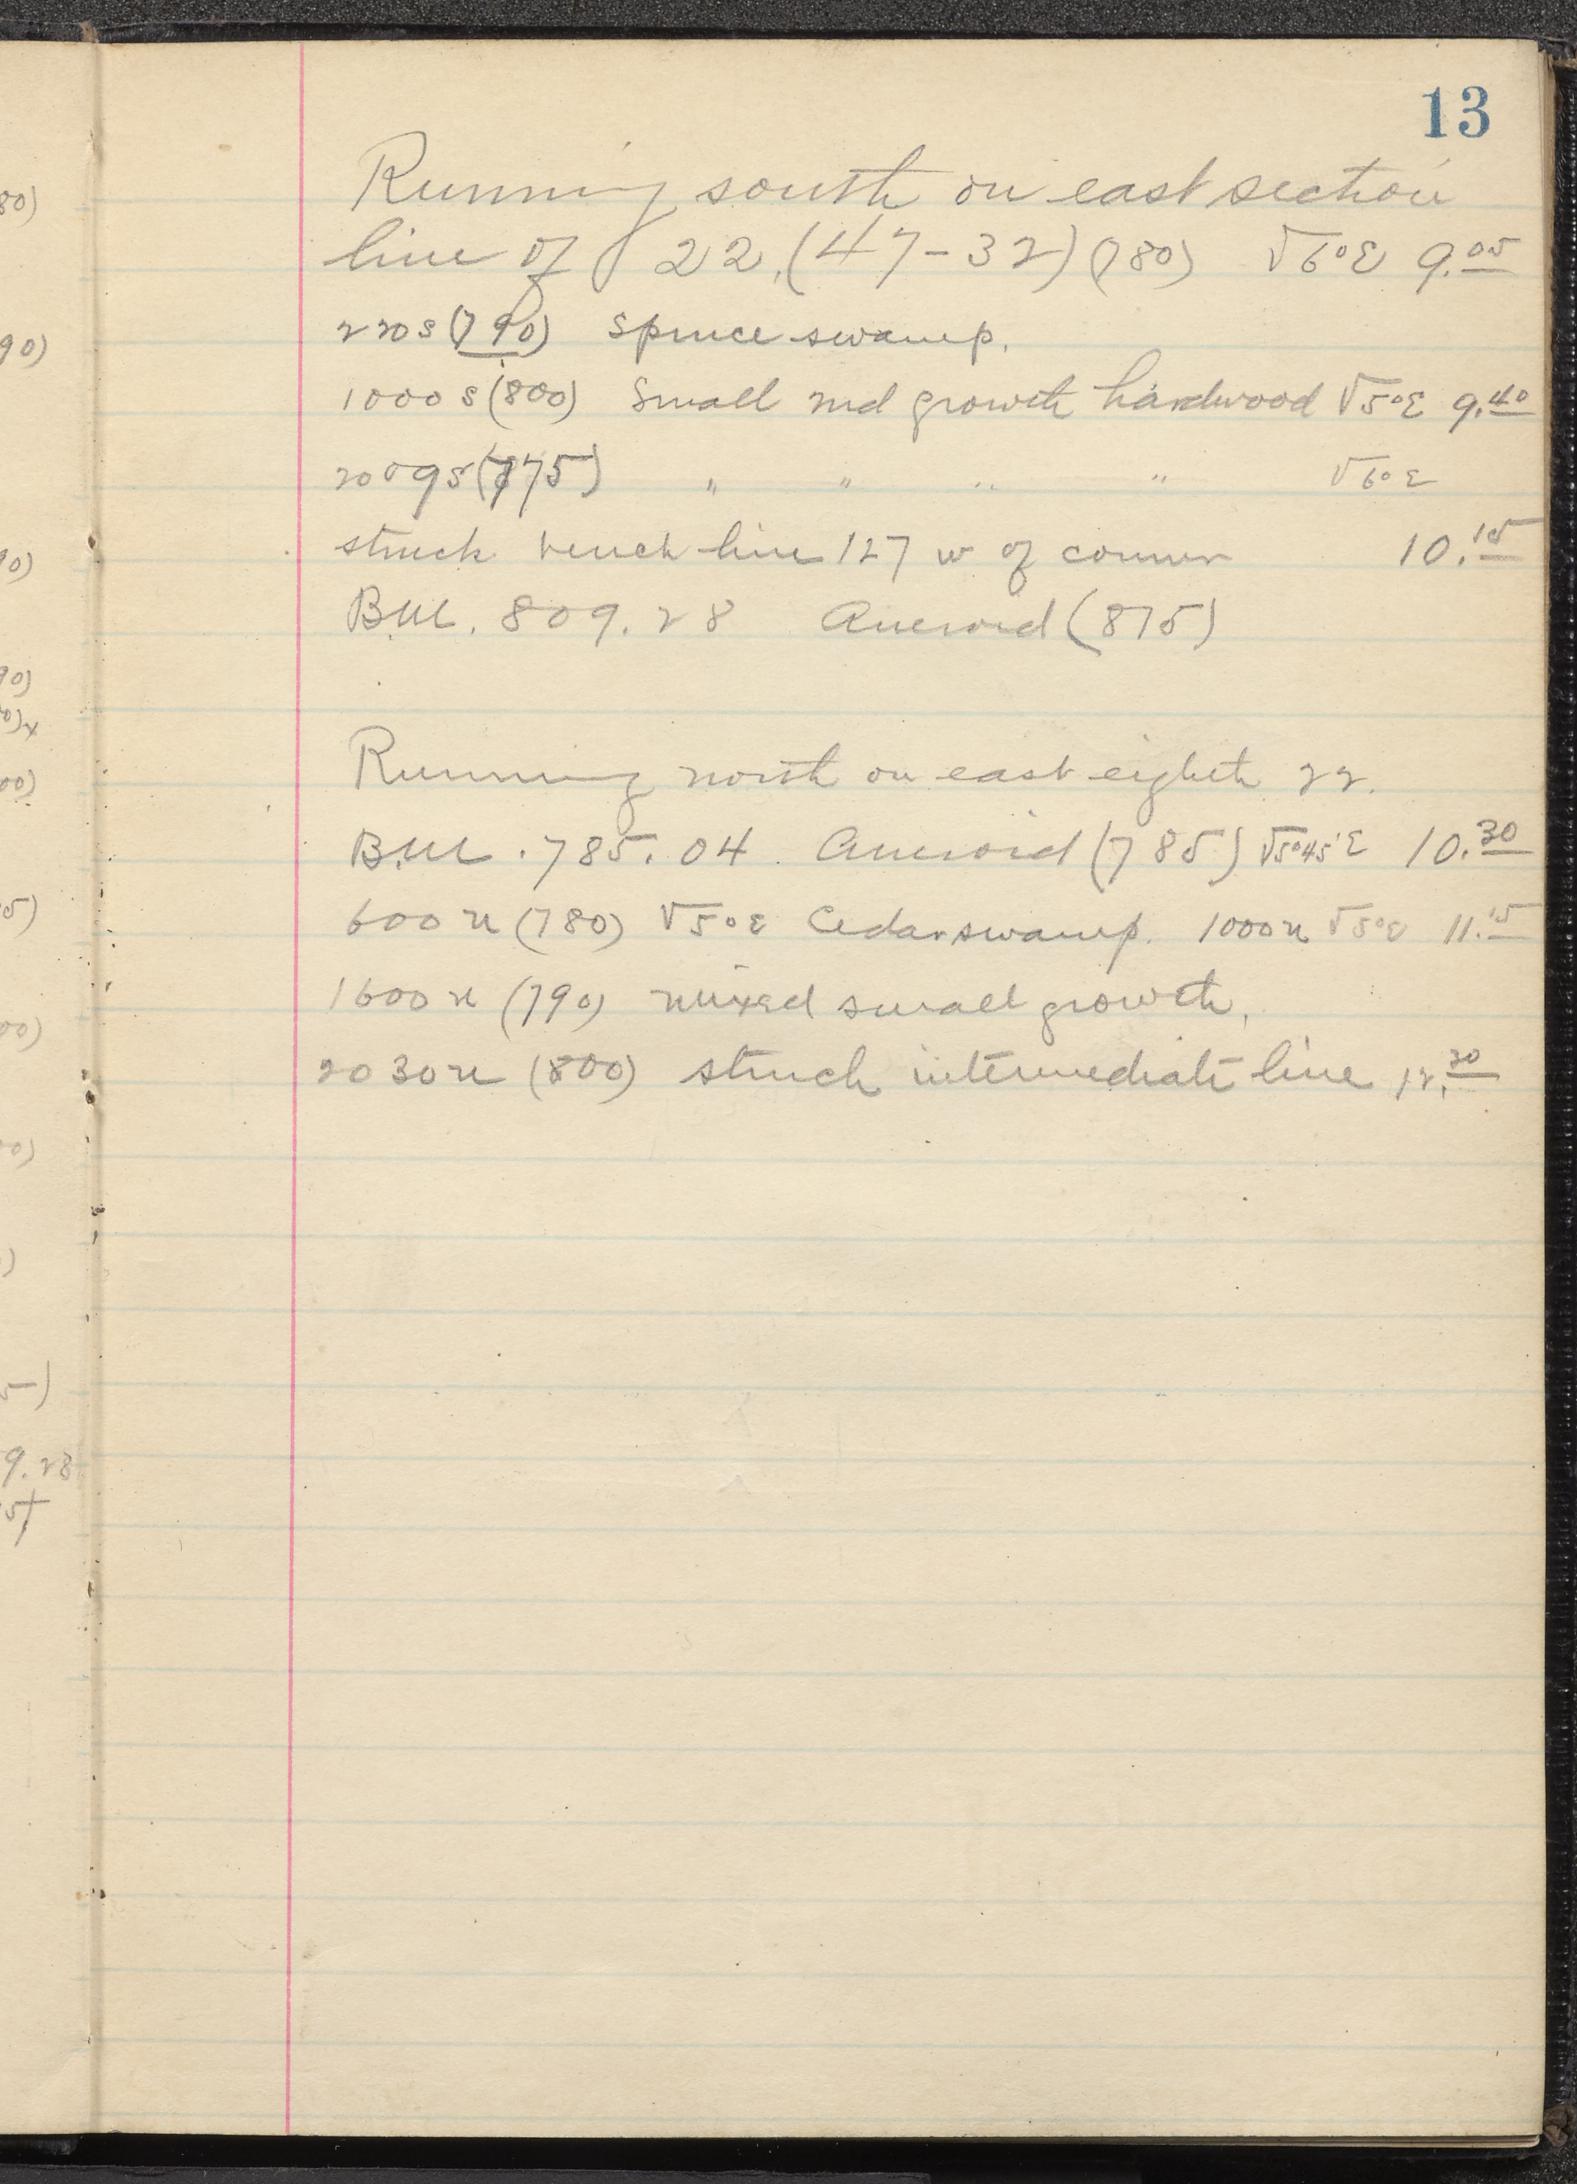 80)
90)
0)
90)
00)
5)
00)
00)
)
5)
9.28
5)
13
Running south on east section
line of 22, (47-32) (780) √6°E 9.05
220 S (790) Spruce swamp.
1000 S (800) Small 2nd growth hardwood √5°E 9.40
2009 S (775) " " " " √6°E
struck bench line 127 w of corner 10.15
B.M. 809.28 Aneroid (815)
Running north on east eighth 22.
B.M. 785.04 Aneroid (785) √5°45'E 10.30
600 n (780) √5°E Cedar swamp. 1000 n √5°E 11.15
1600 n (790) mixed small growth,
2030 n (800) struck intermediate line 12.20